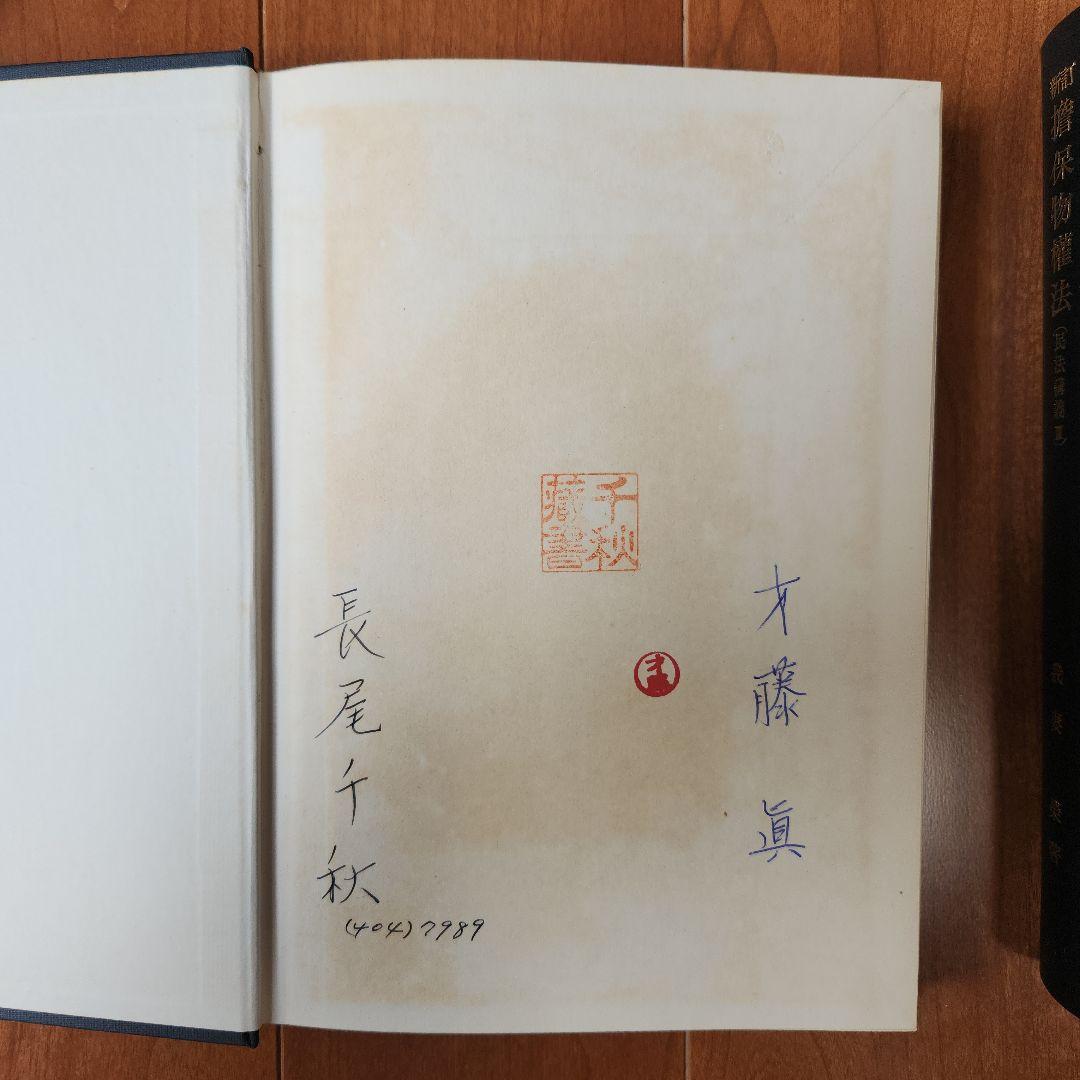 新訂 擔保物權法 (民法講義Ⅲ)
我妻 榮 著
千秋
藏書
才藤 眞
才
長尾千秋
(404)7989